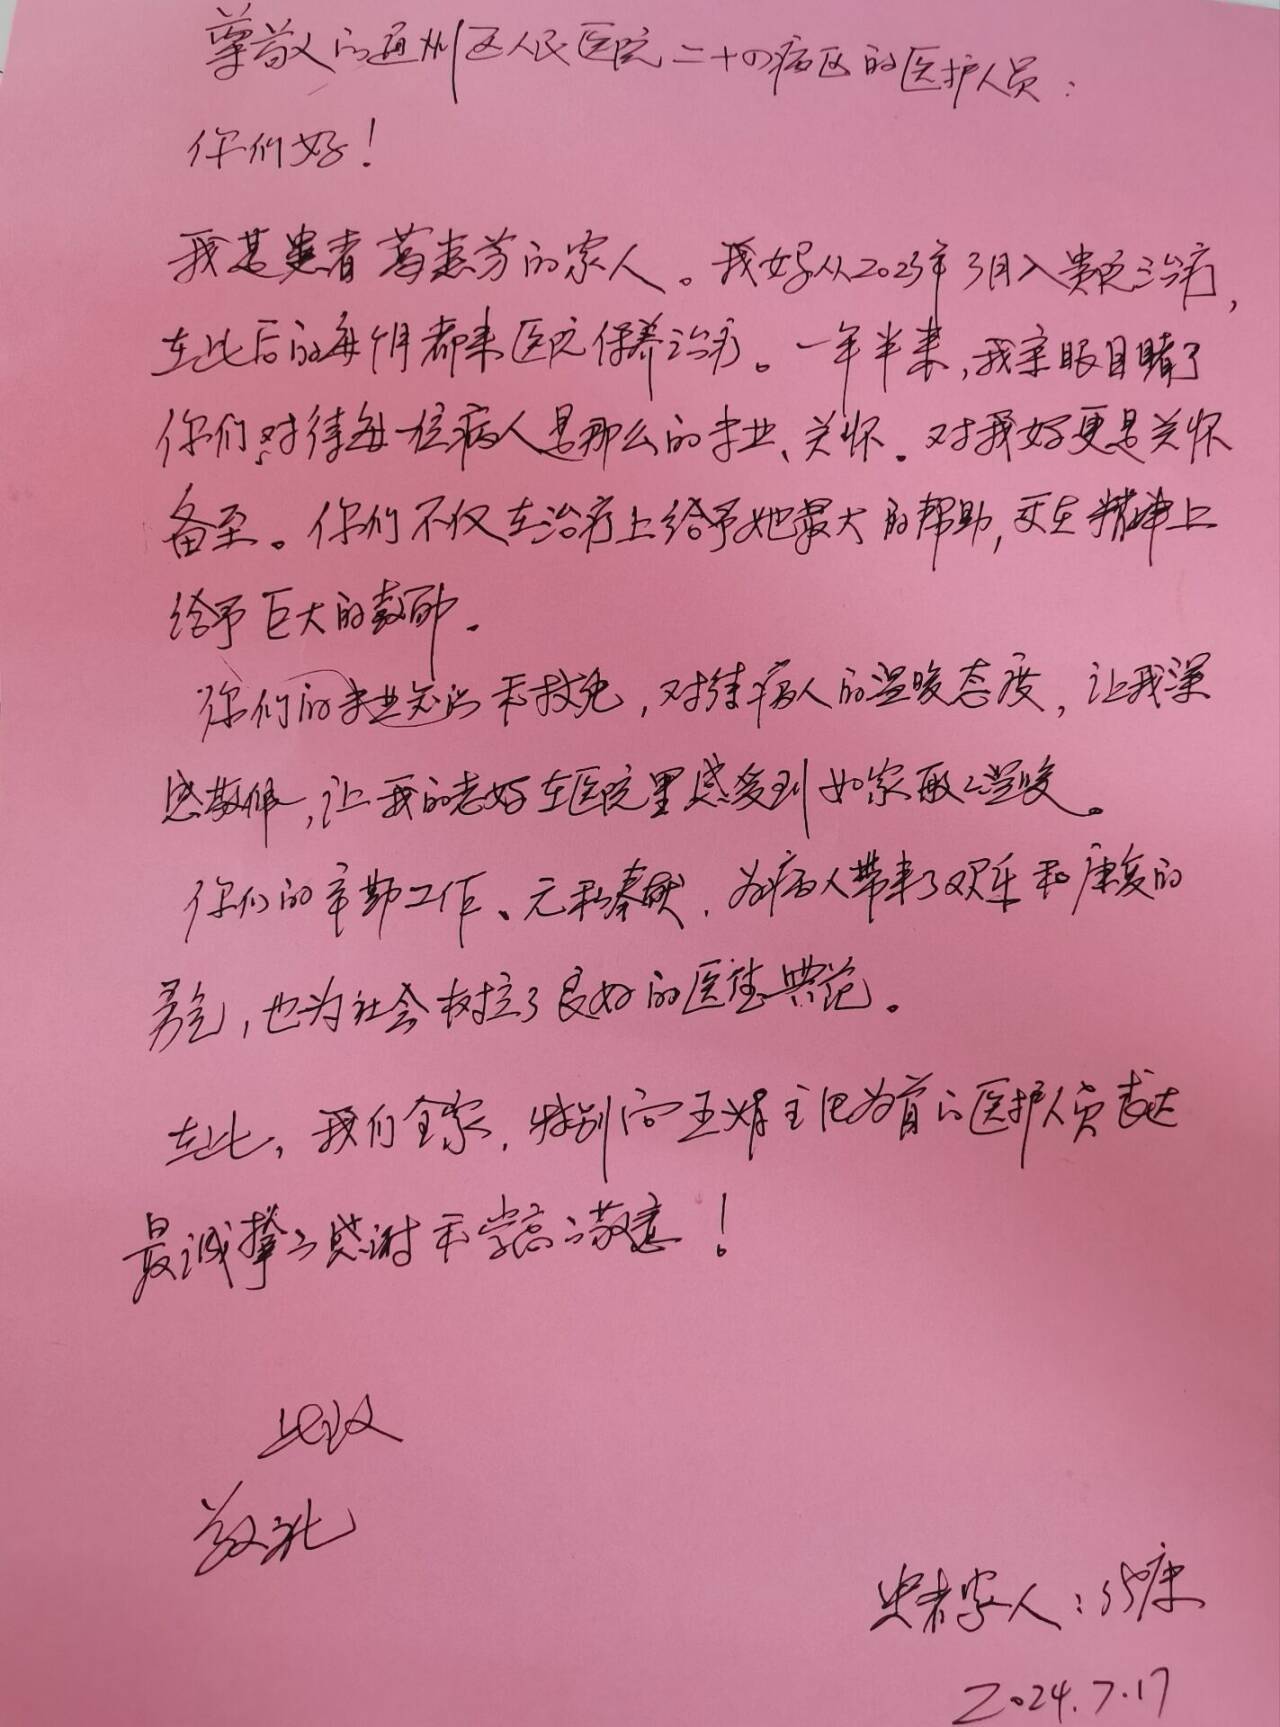 尊敬的通州区人民医院二十四病区的医护人员:
你们好!
我是患者葛惠芳的家人。我妈从2023年3月入贵院治疗,
在此后的每个月都来医院保养治疗。一年半来,我亲眼目睹了
你们对待每一位病人是那么的专业、关怀。对我妈更是关怀
备至。你们不仅在治疗上给予她最大的帮助,更在精神上
给予巨大的鼓励。
你们的专业知识和技能,对待病人的温暖态度,让我深
感敬佩,让我的老妈在医院里感受到如家般的温暖。
你们的辛勤工作、无私奉献,为病人带来了欢乐和康复的
勇气,也为社会树立了良好的医德典范。
在此,我们全家,特别向王娟主任为首的医护人员表达
最诚挚的感谢和崇高的敬意!
此致
敬礼
患者家人:
2024.7.17